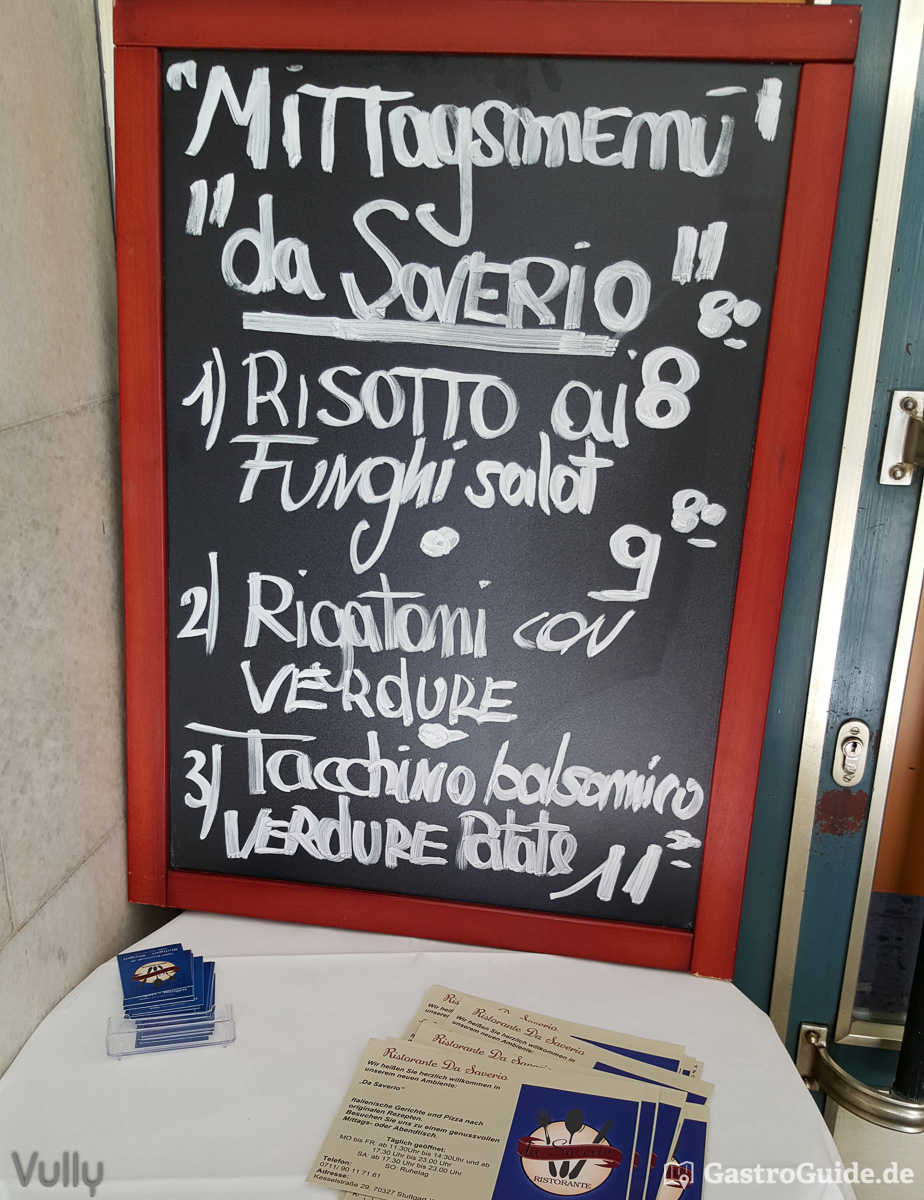 "MiTTagsmEnü"
"da SaVERiO"
1) RiSOTTO ai 8 80
FUNghi salat
9 80
2) Rigatoni CON
VERdURE
3) Tacchino balsamico
VERdURE Patate 11
Ristorante Da Saverio
Ristorante Da Saverio
Wir heißen Sie herzlich willkommen in
unserem neuen Ambiente:
Ristorante Da Saverio
Wir heißen Sie herzlich willkommen in
unserem neuen Ambiente:
„Da Saverio"
Italienische Gerichte und Pizza nach
originalen Rezepten.
Besuchen Sie uns zu einem genussvollen
Mittags- oder Abendtisch.
Täglich geöffnet:
MO bis FR: ab 11:30Uhr bis 14:30Uhr und ab
17.30 Uhr bis 23.00 Uhr
SA: ab 17.30 Uhr bis 23.00 Uhr
SO: Ruhetag
Telefon:
0711/ 90 11 71 61
Adresse:
Kesselstraße 29, 70327 Stuttgart
Da Saverio
RISTORANTE
Vully
GastroGuide.de